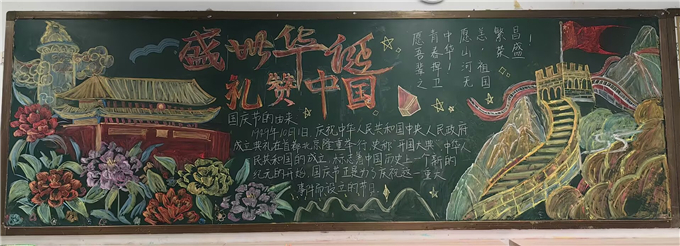 盛世华诞
礼赞中国
愿吾辈之
青春捍卫
中华!
愿山河无
恙,祖国
繁荣
昌盛!
国庆节的由来
1949年10月1日,庆祝中华人民共和国中央人民政府
成立典礼在首都北京隆重举行,史称"开国大典"中华人
民共和国的成立,标志着中国历史上一个新的
纪元的开始,国庆节正是为了庆祝这一重大
事件而设立的节日